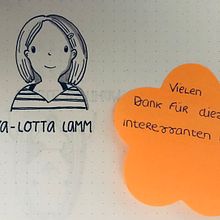 A-LOTTA LAMM
VIELEN
DANK FÜR
INTERESSANTEN